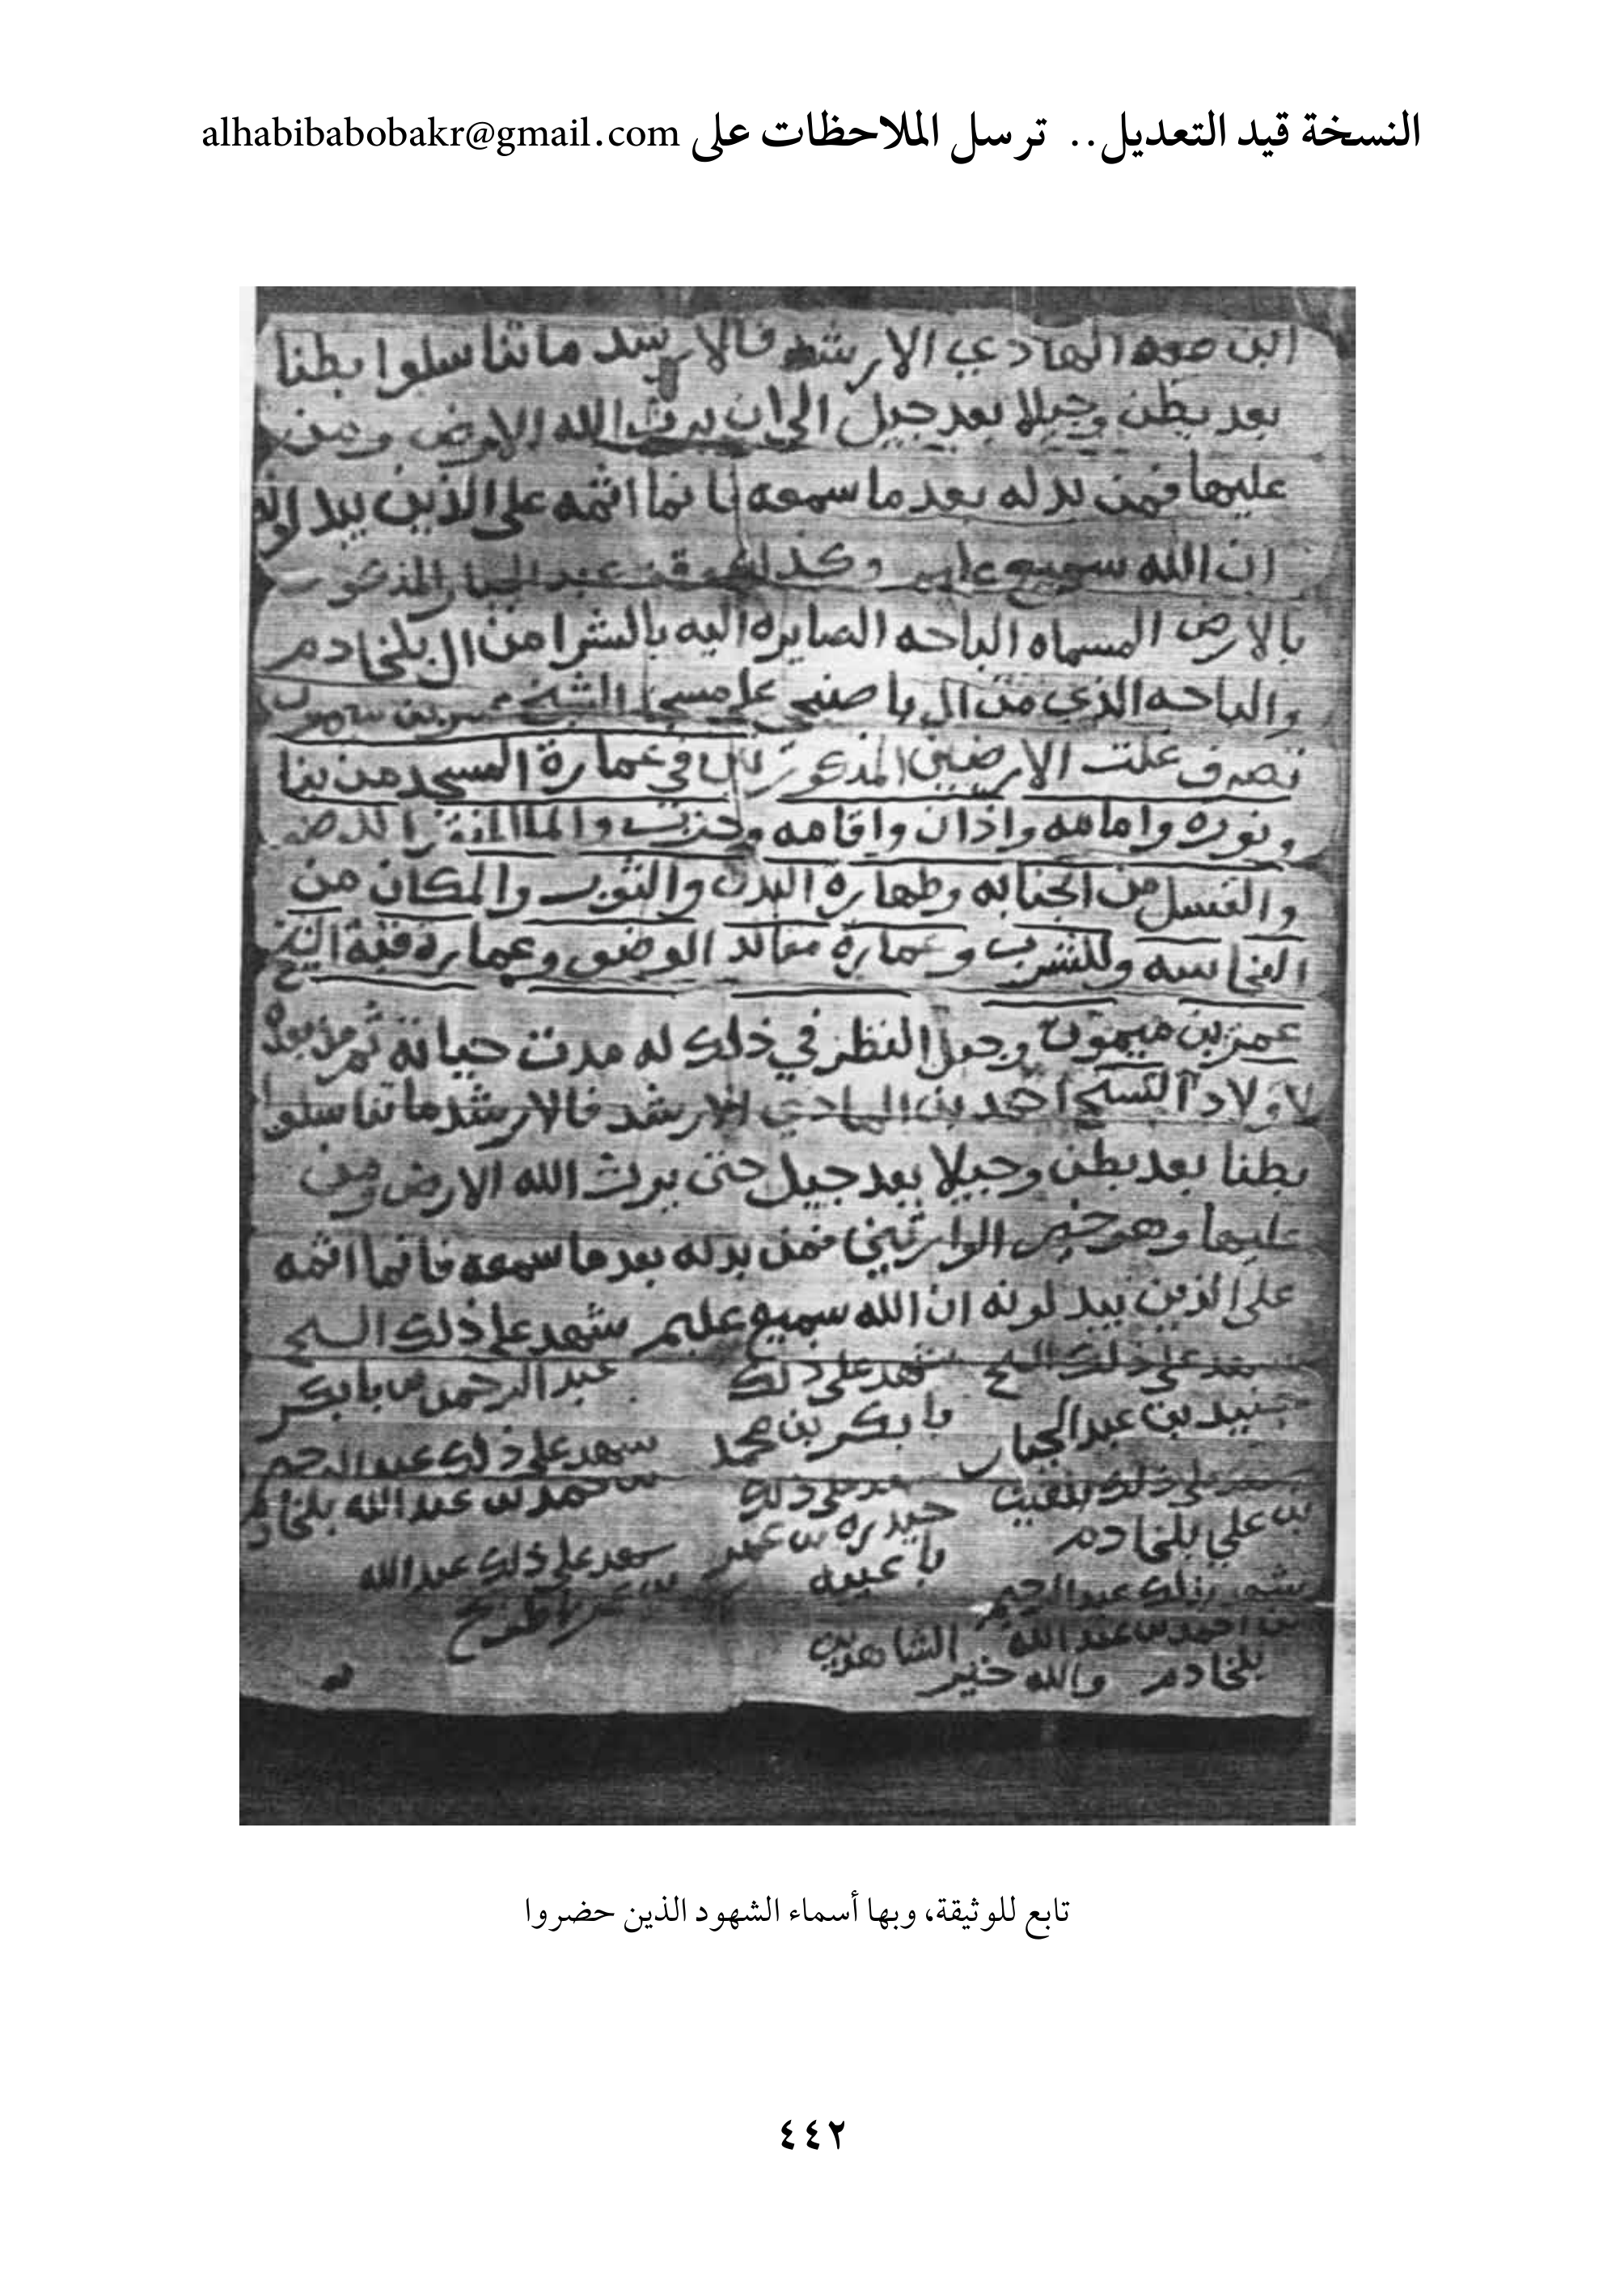 النسخة قيد التعديل.. ترسل الملاحظات على alhabibabobakr@gmail.com
ابن الهادي الارشد فالارشد ما تناسلوا بطنا
بعد بطن وجيلا بعد جيل الى ان يرث الله الارض ومن
عليها فمن بدله بعد ما سمعه فانما اثمه على الذين يبدلونه
ان الله سميع عليم وكذلك عبد الجبار المذكور
بالارض المسماه الباحه الصايره اليه بالشرا من ال بلخادم
والباحه الذي من ال على مسجد الشيخ عمر بن ميمون
تصرف غلت الارضين المذكورتين في عمارة المسجد من بنا
ونوره وامامه واذان واقامه والما
والغسل من الجنابه وطهارة البدن والثوب والمكان من
النجاسه وللشرب وعمارة الوضو وعمارة قبة الشيخ
عمر بن ميمون وجعل النظر في ذلك له مدت حياته ثم من بعده
لاولاد الشيخ احمد بن الهادي الارشد فالارشد ما تناسلوا
بطنا بعد بطن وجيلا بعد جيل حتى يرث الله الارض ومن
عليها وهو خير الوارثين فمن بدله بعد ما سمعه فانما اثمه
على الذين يبدلونه ان الله سميع عليم شهد على ذلك الشيخ
عبد الرحمن بن بابكر
شهد على ذلك الشيخ
جنيد بن عبد الجبار
شهد على ذلك
بابكر بن محمد
شهد على ذلك عبد الرحيم
بن محمد بن عبد الله بلخادم
على ذلك الفقيه
بن علي بلخادم
شهد على ذلك
حيدره بن عمر
با عبيه
شهد على ذلك عبد الله
بن عمر
بذلك عبد الرحيم
بن احمد بن عبد الله
بلخادم والله خير الشاهدين
تابع للوثيقة، وبها أسماء الشهود الذين حضروا
٤٤٢